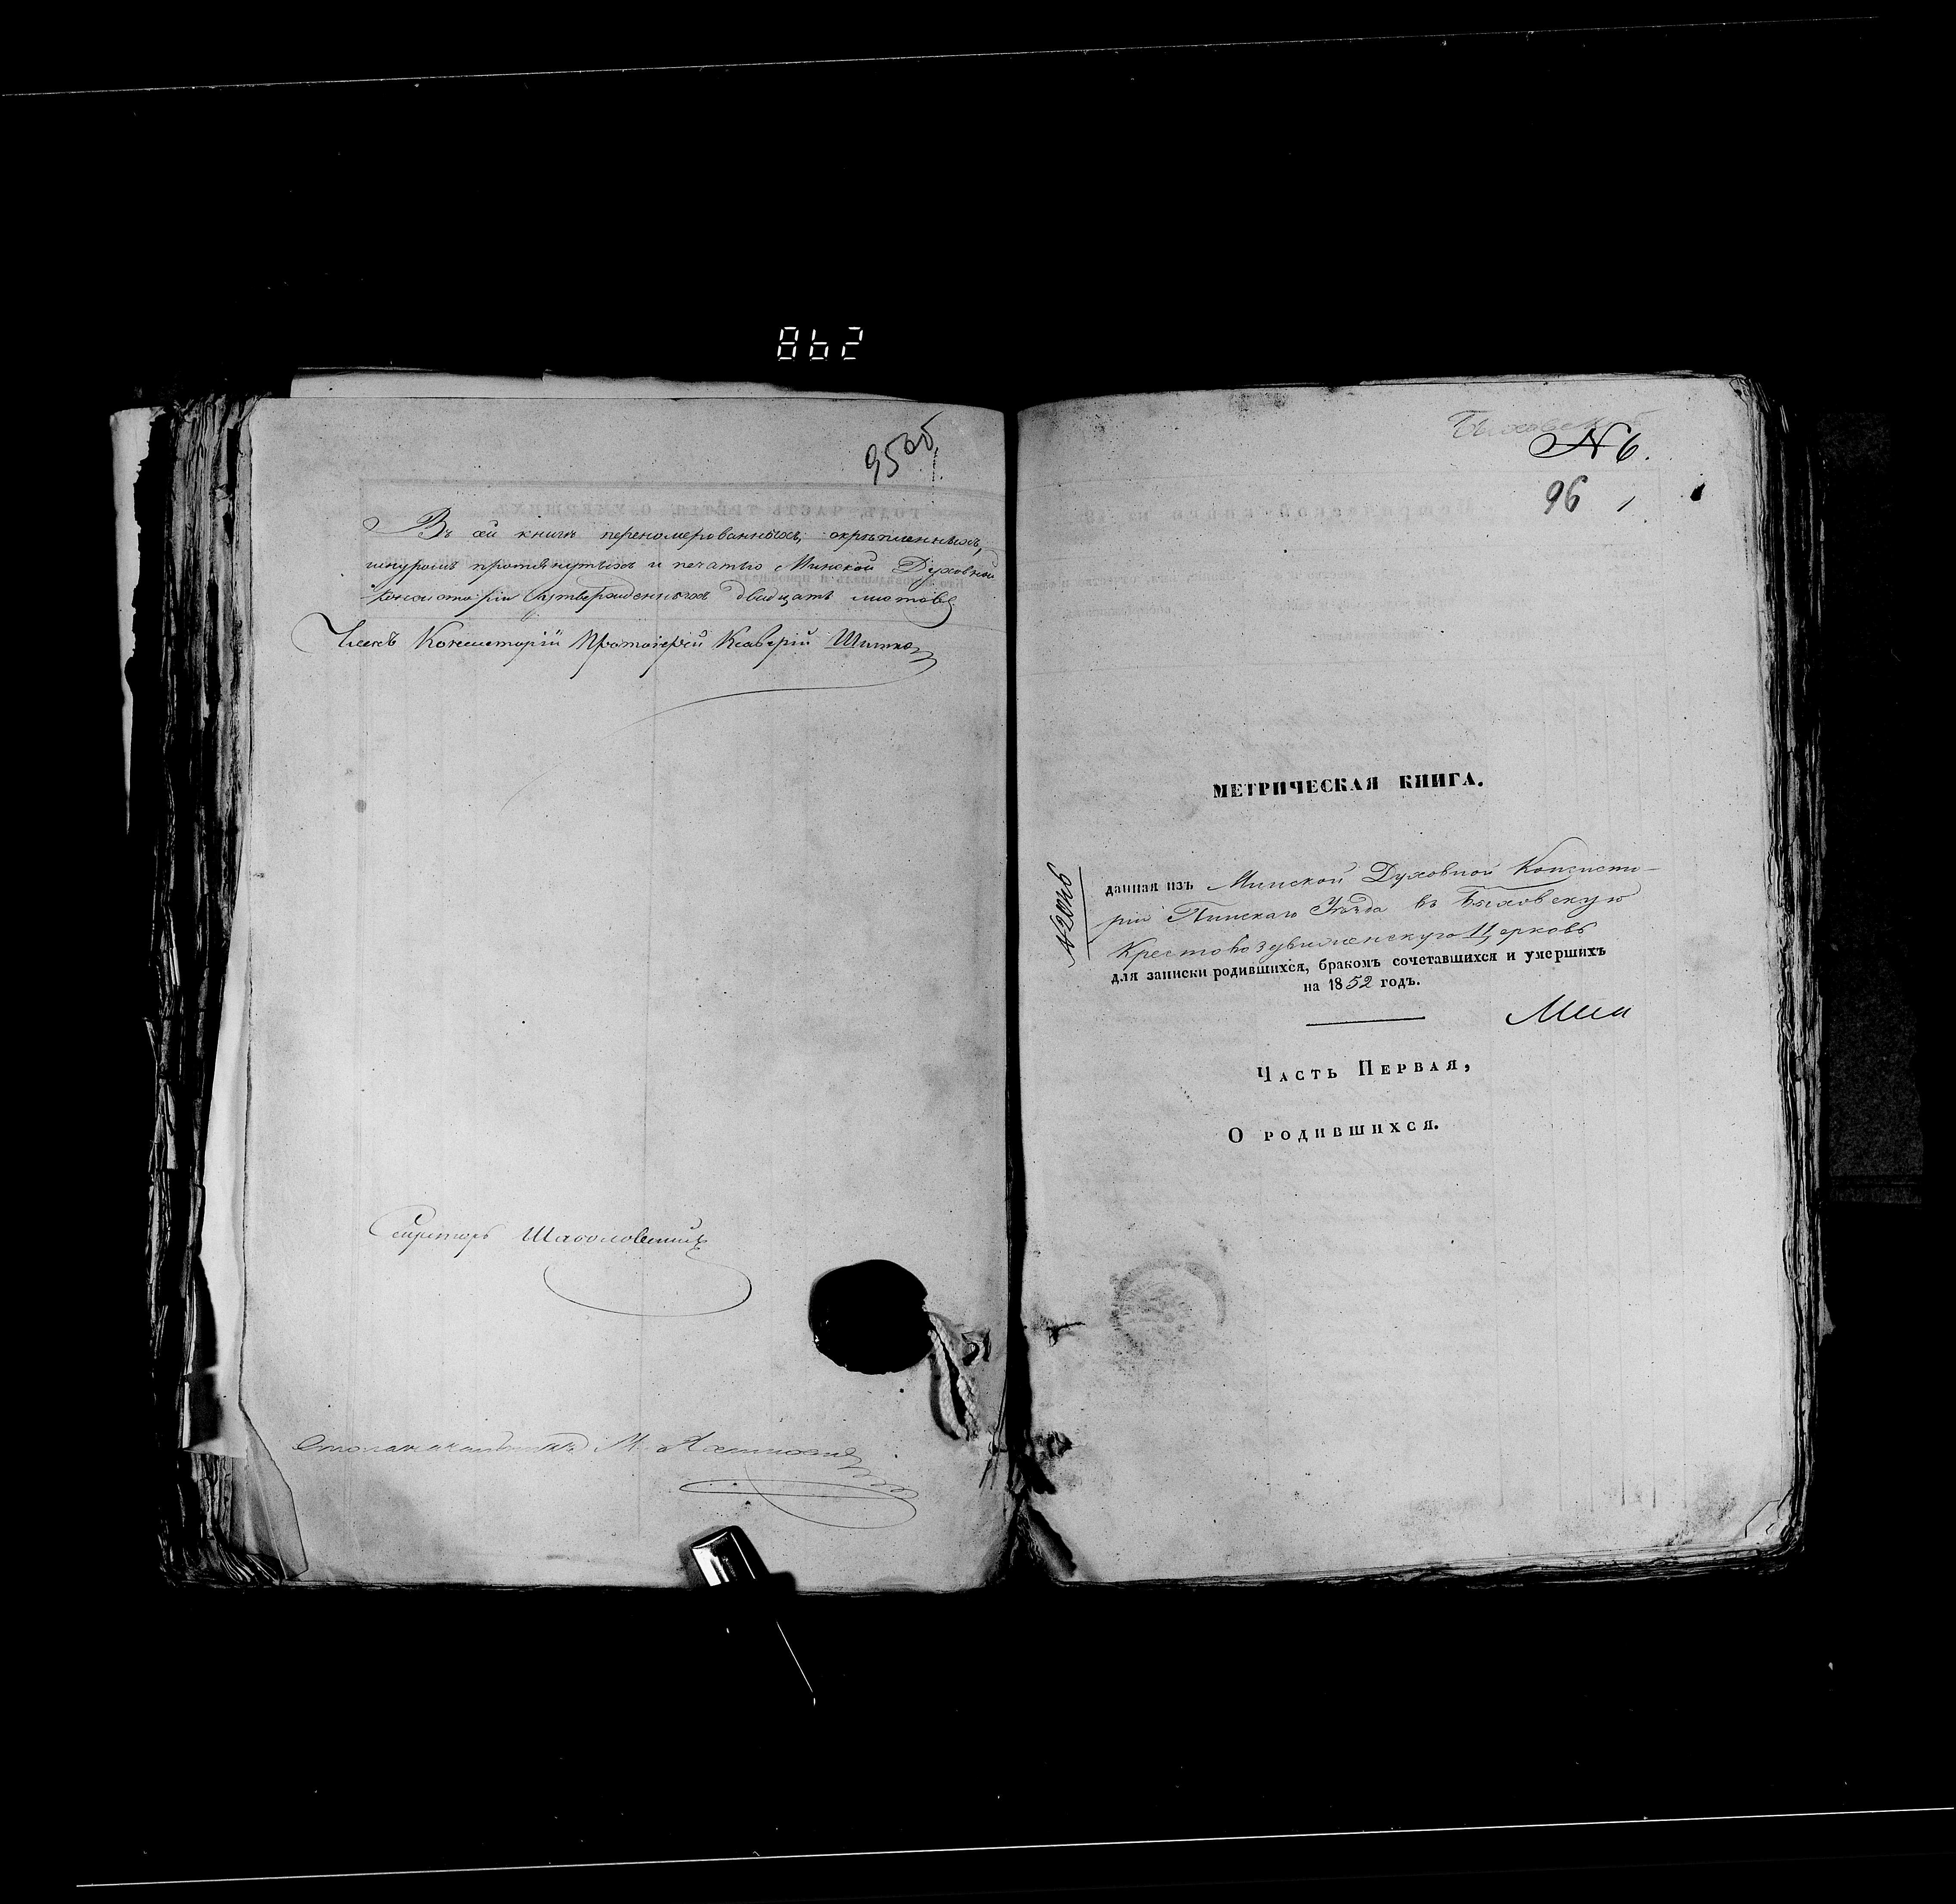 862
95 об.
Въ сей книгѣ переномерованныхъ, скрѣпленныхъ,
шнуромъ протянутыхъ и печатью Минской Духовной
Консисторіи утвержденныхъ двадцать листовъ
Членъ Консисторіи Протоіерей Ксаверій
Секретарь
Столоначальникъ М.
N 6.
96 1
МЕТРИЧЕСКАЯ КНИГА.
данная изъ Минской Духовной Консисто-
ріи Пинскаго Уѣзда въ Быховскую
Крестовоздвиженскую Церковь
для записки родившихся, бракомъ сочетавшихся и умершихъ
на 1852 годъ.
Часть Первая,
О родившихся.